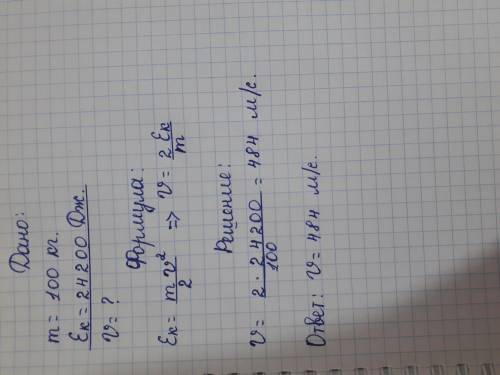 Дано:
m = 100 кг.
Eк = 24200 Дж.
v = ?
Формула:
Eк = mv²/2 => v = 2Eк/m
Решение:
v = 2 · 24200/100 = 484 м/с.
Ответ: v = 484 м/с.